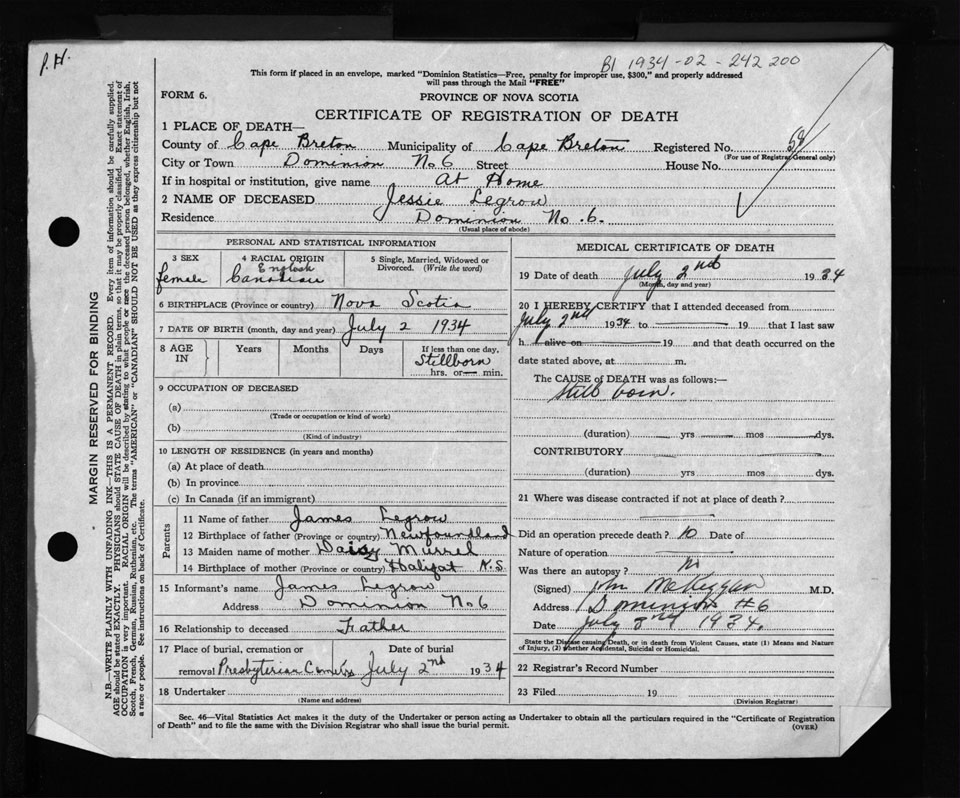 P.H.
B1 1934-02-242200
This form if placed in an envelope, marked "Dominion Statistics—Free, penalty for improper use, $300," and properly addressed
will pass through the Mail "FREE"
FORM 6.
PROVINCE OF NOVA SCOTIA
CERTIFICATE OF REGISTRATION OF DEATH
1 PLACE OF DEATH—
County of Cape Breton Municipality of Cape Breton Registered No.
(For use of Registrar General only)
City or Town Dominion No 6 Street House No.
If in hospital or institution, give name At Home
2 NAME OF DECEASED Jessie Legrow
Residence Dominion No. 6.
(Usual place of abode)
PERSONAL AND STATISTICAL INFORMATION
3 SEX
female
4 RACIAL ORIGIN
English
Canadian
5 Single, Married, Widowed or
Divorced. (Write the word)
6 BIRTHPLACE (Province or country) Nova Scotia
7 DATE OF BIRTH (month, day and year) July 2 1934
8 AGE
IN
Years
Months
Days
If less than one day,
Stillborn
hrs. or min.
9 OCCUPATION OF DECEASED
(a)
(Trade or occupation or kind of work)
(b)
(Kind of industry)
10 LENGTH OF RESIDENCE (in years and months)
(a) At place of death
(b) In province
(c) In Canada (if an immigrant)
Parents
11 Name of father James Legrow
12 Birthplace of father (Province or country) Newfoundland
13 Maiden name of mother Daisy Murrel
14 Birthplace of mother (Province or country) Halifat N.S
15 Informant's name James Legrow
Address Dominion No 6
16 Relationship to deceased Father
17 Place of burial, cremation or Date of burial
removal Presbyterian July 2nd 1934
18 Undertaker
(Name and address)
MEDICAL CERTIFICATE OF DEATH
19 Date of death July 2nd 1934
(Month, day and year)
20 I HEREBY CERTIFY that I attended deceased from
July 2nd 1934 to 19 that I last saw
h alive on 19 and that death occurred on the
date stated above, at m.
The CAUSE of DEATH was as follows:—
Still born.
(duration) yrs mos dys.
CONTRIBUTORY
(duration) yrs mos dys.
21 Where was disease contracted if not at place of death?
Did an operation precede death? no Date of
Nature of operation
Was there an autopsy? no
(Signed) John McKeggan M.D.
Address Dominion #6
Date July 2nd 1934.
State the Disease causing Death, or in death from Violent Causes, state (1) Means and Nature
of Injury, (2) whether Accidental, Suicidal or Homicidal.
22 Registrar's Record Number
23 Filed 19
(Division Registrar)
Sec. 46—Vital Statistics Act makes it the duty of the Undertaker or person acting as Undertaker to obtain all the particulars required in the "Certificate of Registration
of Death" and to file the same with the Division Registrar who shall issue the burial permit.
(OVER)
MARGIN RESERVED FOR BINDING
N.B.—WRITE PLAINLY WITH UNFADING INK—THIS IS A PERMANENT RECORD. Every item of information should be carefully supplied.
AGE should be stated EXACTLY. PHYSICIANS should STATE CAUSE OF DEATH in plain terms, so that it may be properly classified. Exact statement of
OCCUPATION is very important. RACIAL ORIGIN will be described by stating to what people or race the deceased person belonged, whether English, Irish,
Scotch, French, German, Russian, Ruthenian, etc. The terms "AMERICAN" or "CANADIAN" SHOULD NOT BE USED as they express citizenship but not
a race or people. See instructions on back of Certificate.